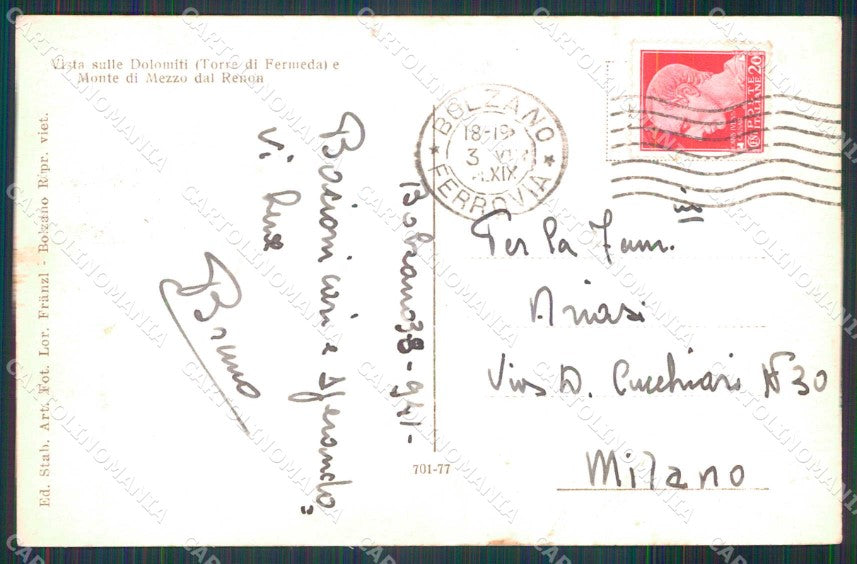 Vista sulle Dolomiti (Torre di Fermeda) e
Monte di Mezzo dal Renon
Ed. Stab. Art. Fot. Lor. Fränzl - Bolzano Ripr. viet.
Bolzano 3-8-941-
Bacioni cari e sperando,
Vi
Bruno
701-77
BOLZANO
18-19
3 VIII
XIX
FERROVIA
POSTE
ITALIANE
20
Per la Fam.
Ariasi
Via D. Cucchiari N 30
Milano
CARTOLINOMANIA